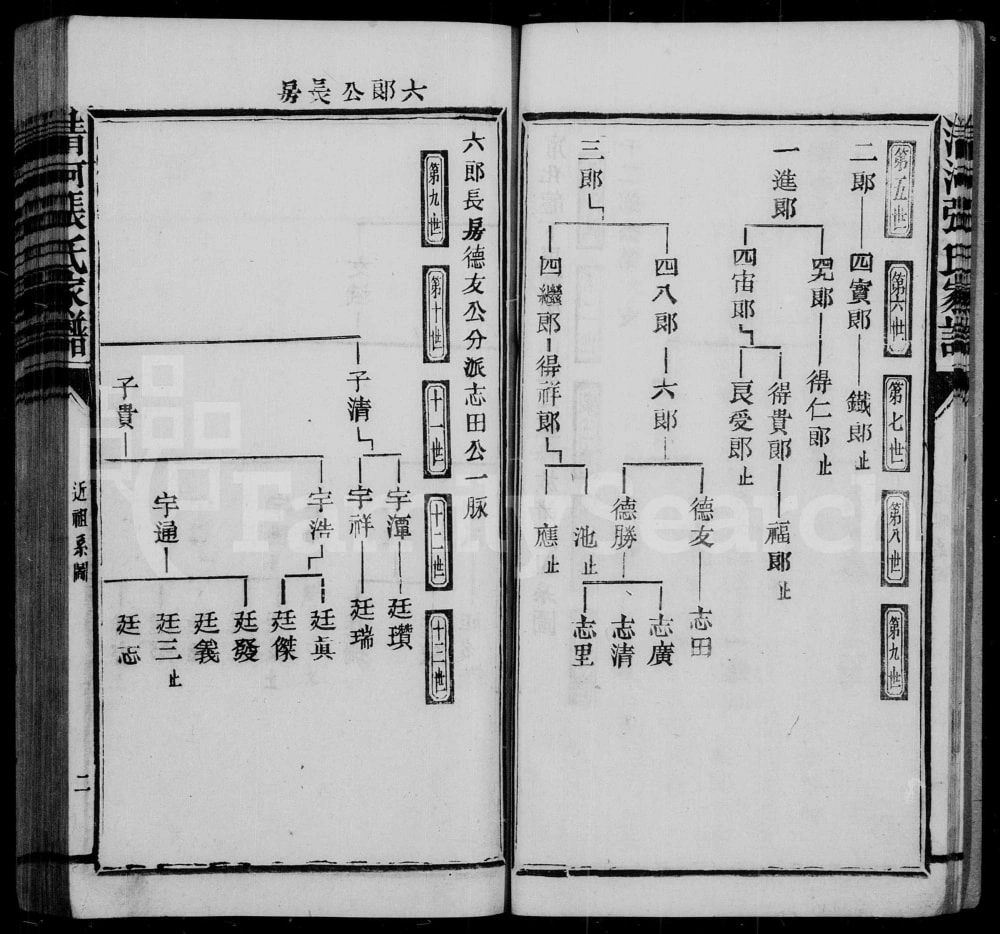 清河張氏家譜
第五世
第六世
第七世
第八世
第九世
二郎
四寶郎
鐵郎止
一進郎
四九郎
得仁郎止
四宙郎
得貴郎
福郎止
良受郎止
三郎
四八郎
六郎
德友
志田
德勝
志廣
志清
志里
四繼郎
得祥郎
池止
應止
六郎公長房
六郎長房德友公分派志田公一脉
第九世
第十世
十一世
十二世
十三世
子清
宇潭
廷瓚
宇祥
廷瑞
子貴
宇浩
廷眞
廷傑
宇通
廷發
廷義
廷三止
廷志
清河張氏家譜
近祖系圖
二
FamilySearch